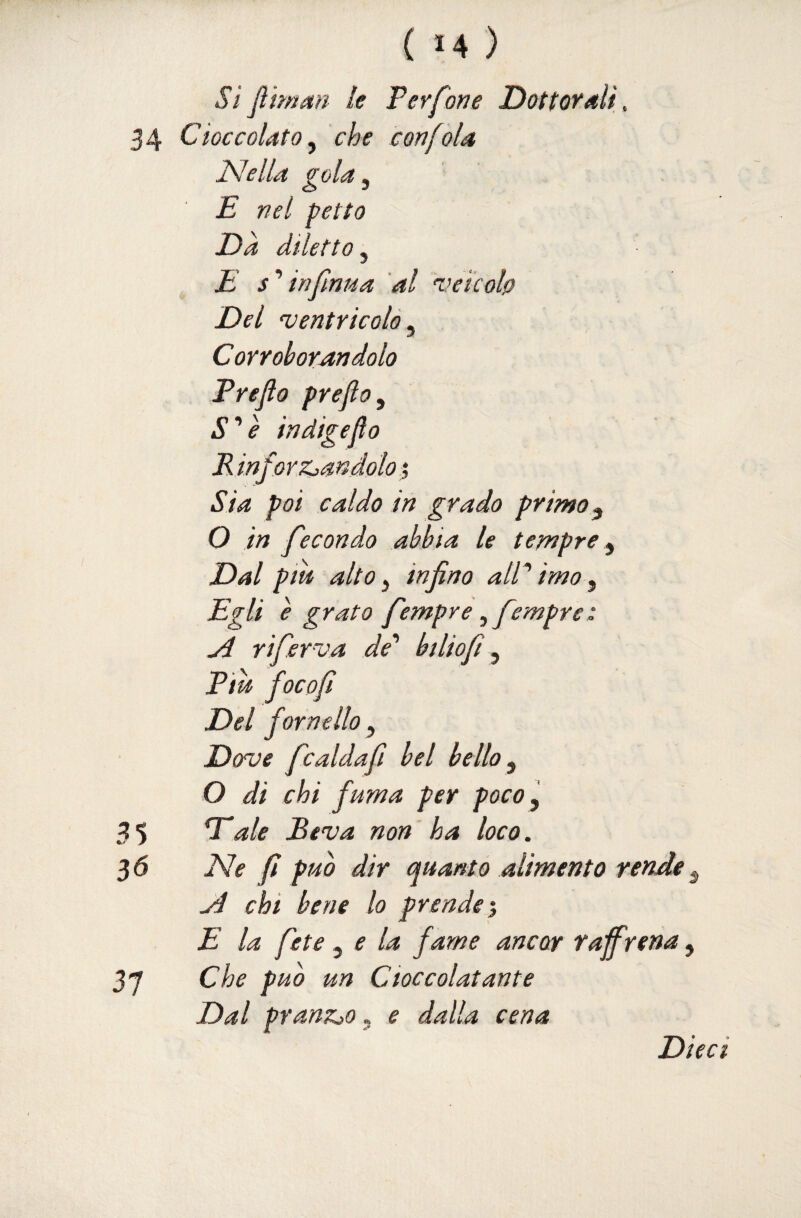 ( 14 )
Si ſtiman le Perſone Dottorali.
34 Cioccolato, che conſola
Nella gola,
E nel petto
Dà diletto,
E s' inſinua al veicolo
Del ventricolo,
Corroborandolo
Preſto preſto,
S' è indigeſto
Rinforzandolo;
Sia poi caldo in grado primo,
O in ſecondo abbia le tempre,
Dal più alto, inſino all' imo,
Egli è grato ſempre, ſempre:
A riſerva de' bilioſi,
Più focoſi
Del fornello,
Dove ſcaldaſi bel bello,
O di chi fuma per poco,
35 Tale Beva non ha loco.
36 Ne ſi può dir quanto alimento rende,
A chi bene lo prende;
E la ſete, e la fame ancor raffrena,
37 Che può un Cioccolatante
Dal pranzo, e dalla cena
Dieci